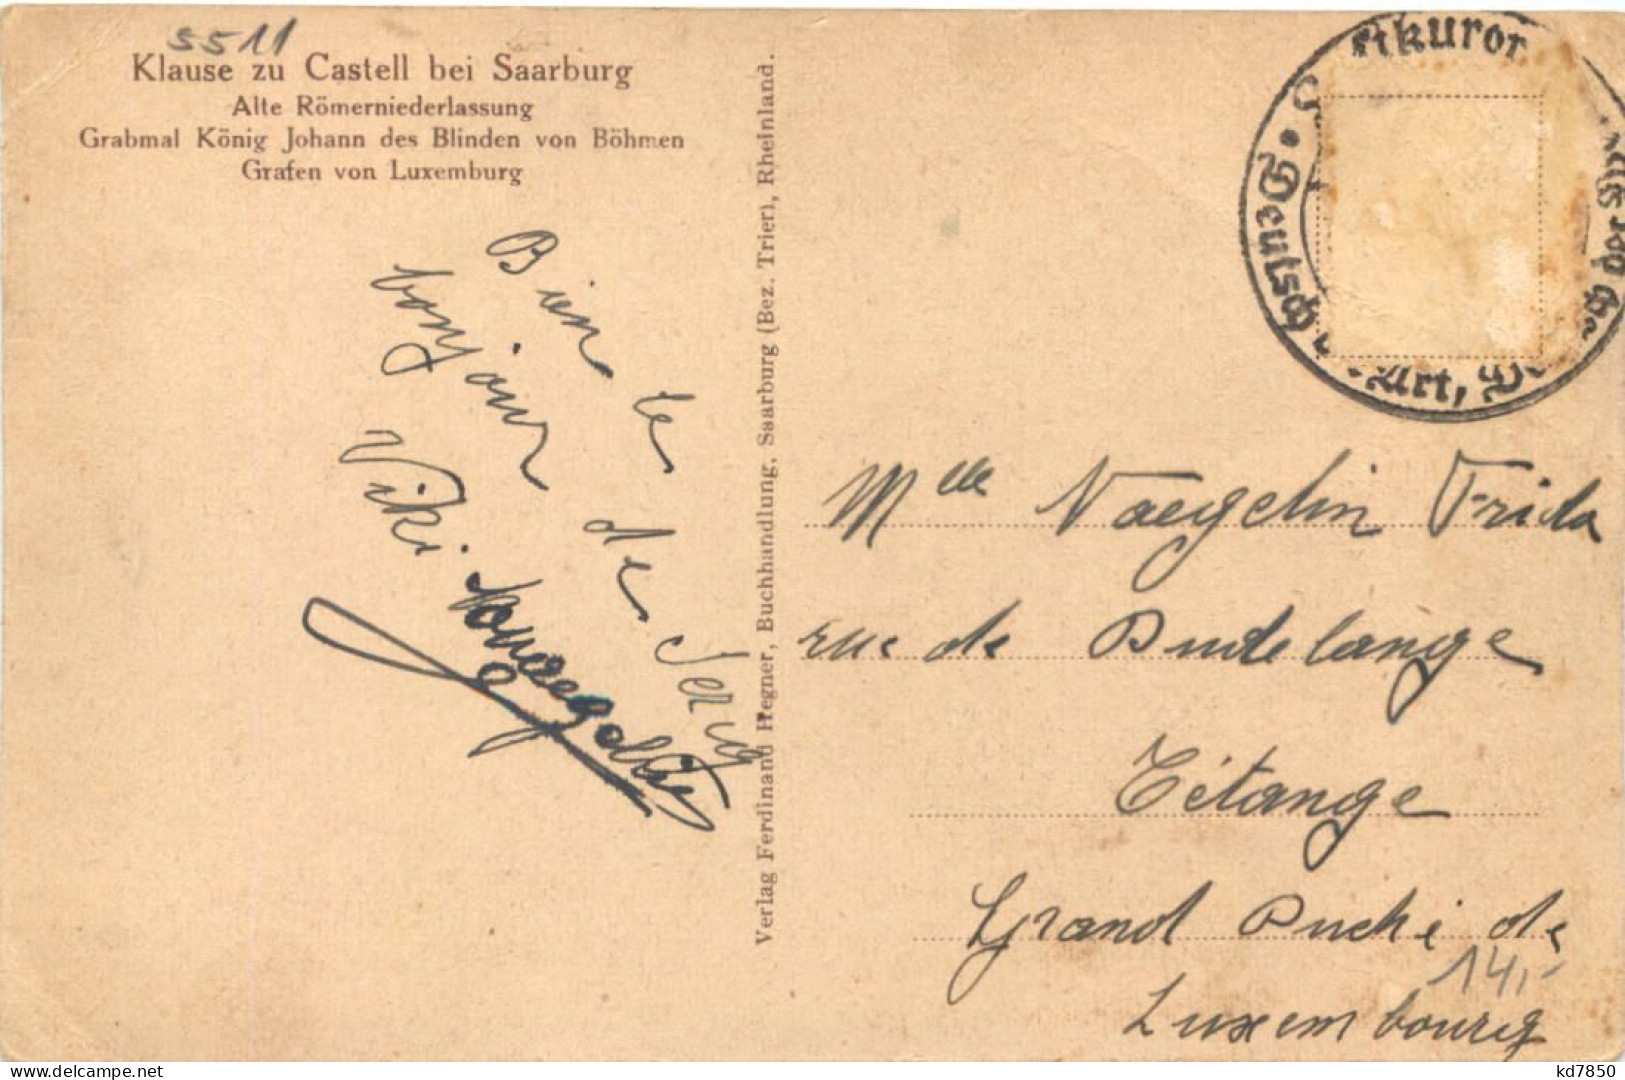 5511
Klause zu Castell bei Saarburg
Alte Römerniederlassung
Grabmal König Johann des Blinden von Böhmen
Grafen von Luxemburg
Bien le
bonjour de Serrig
Viki
Verlag Ferdinand Hegner, Buchhandlung, Saarburg (Bez. Trier), Rheinland.
Art,
Mlle Naegelin Frida
rue de Dudelange
Tétange
Grand Duché de
Luxembourg
14,-
kd7850